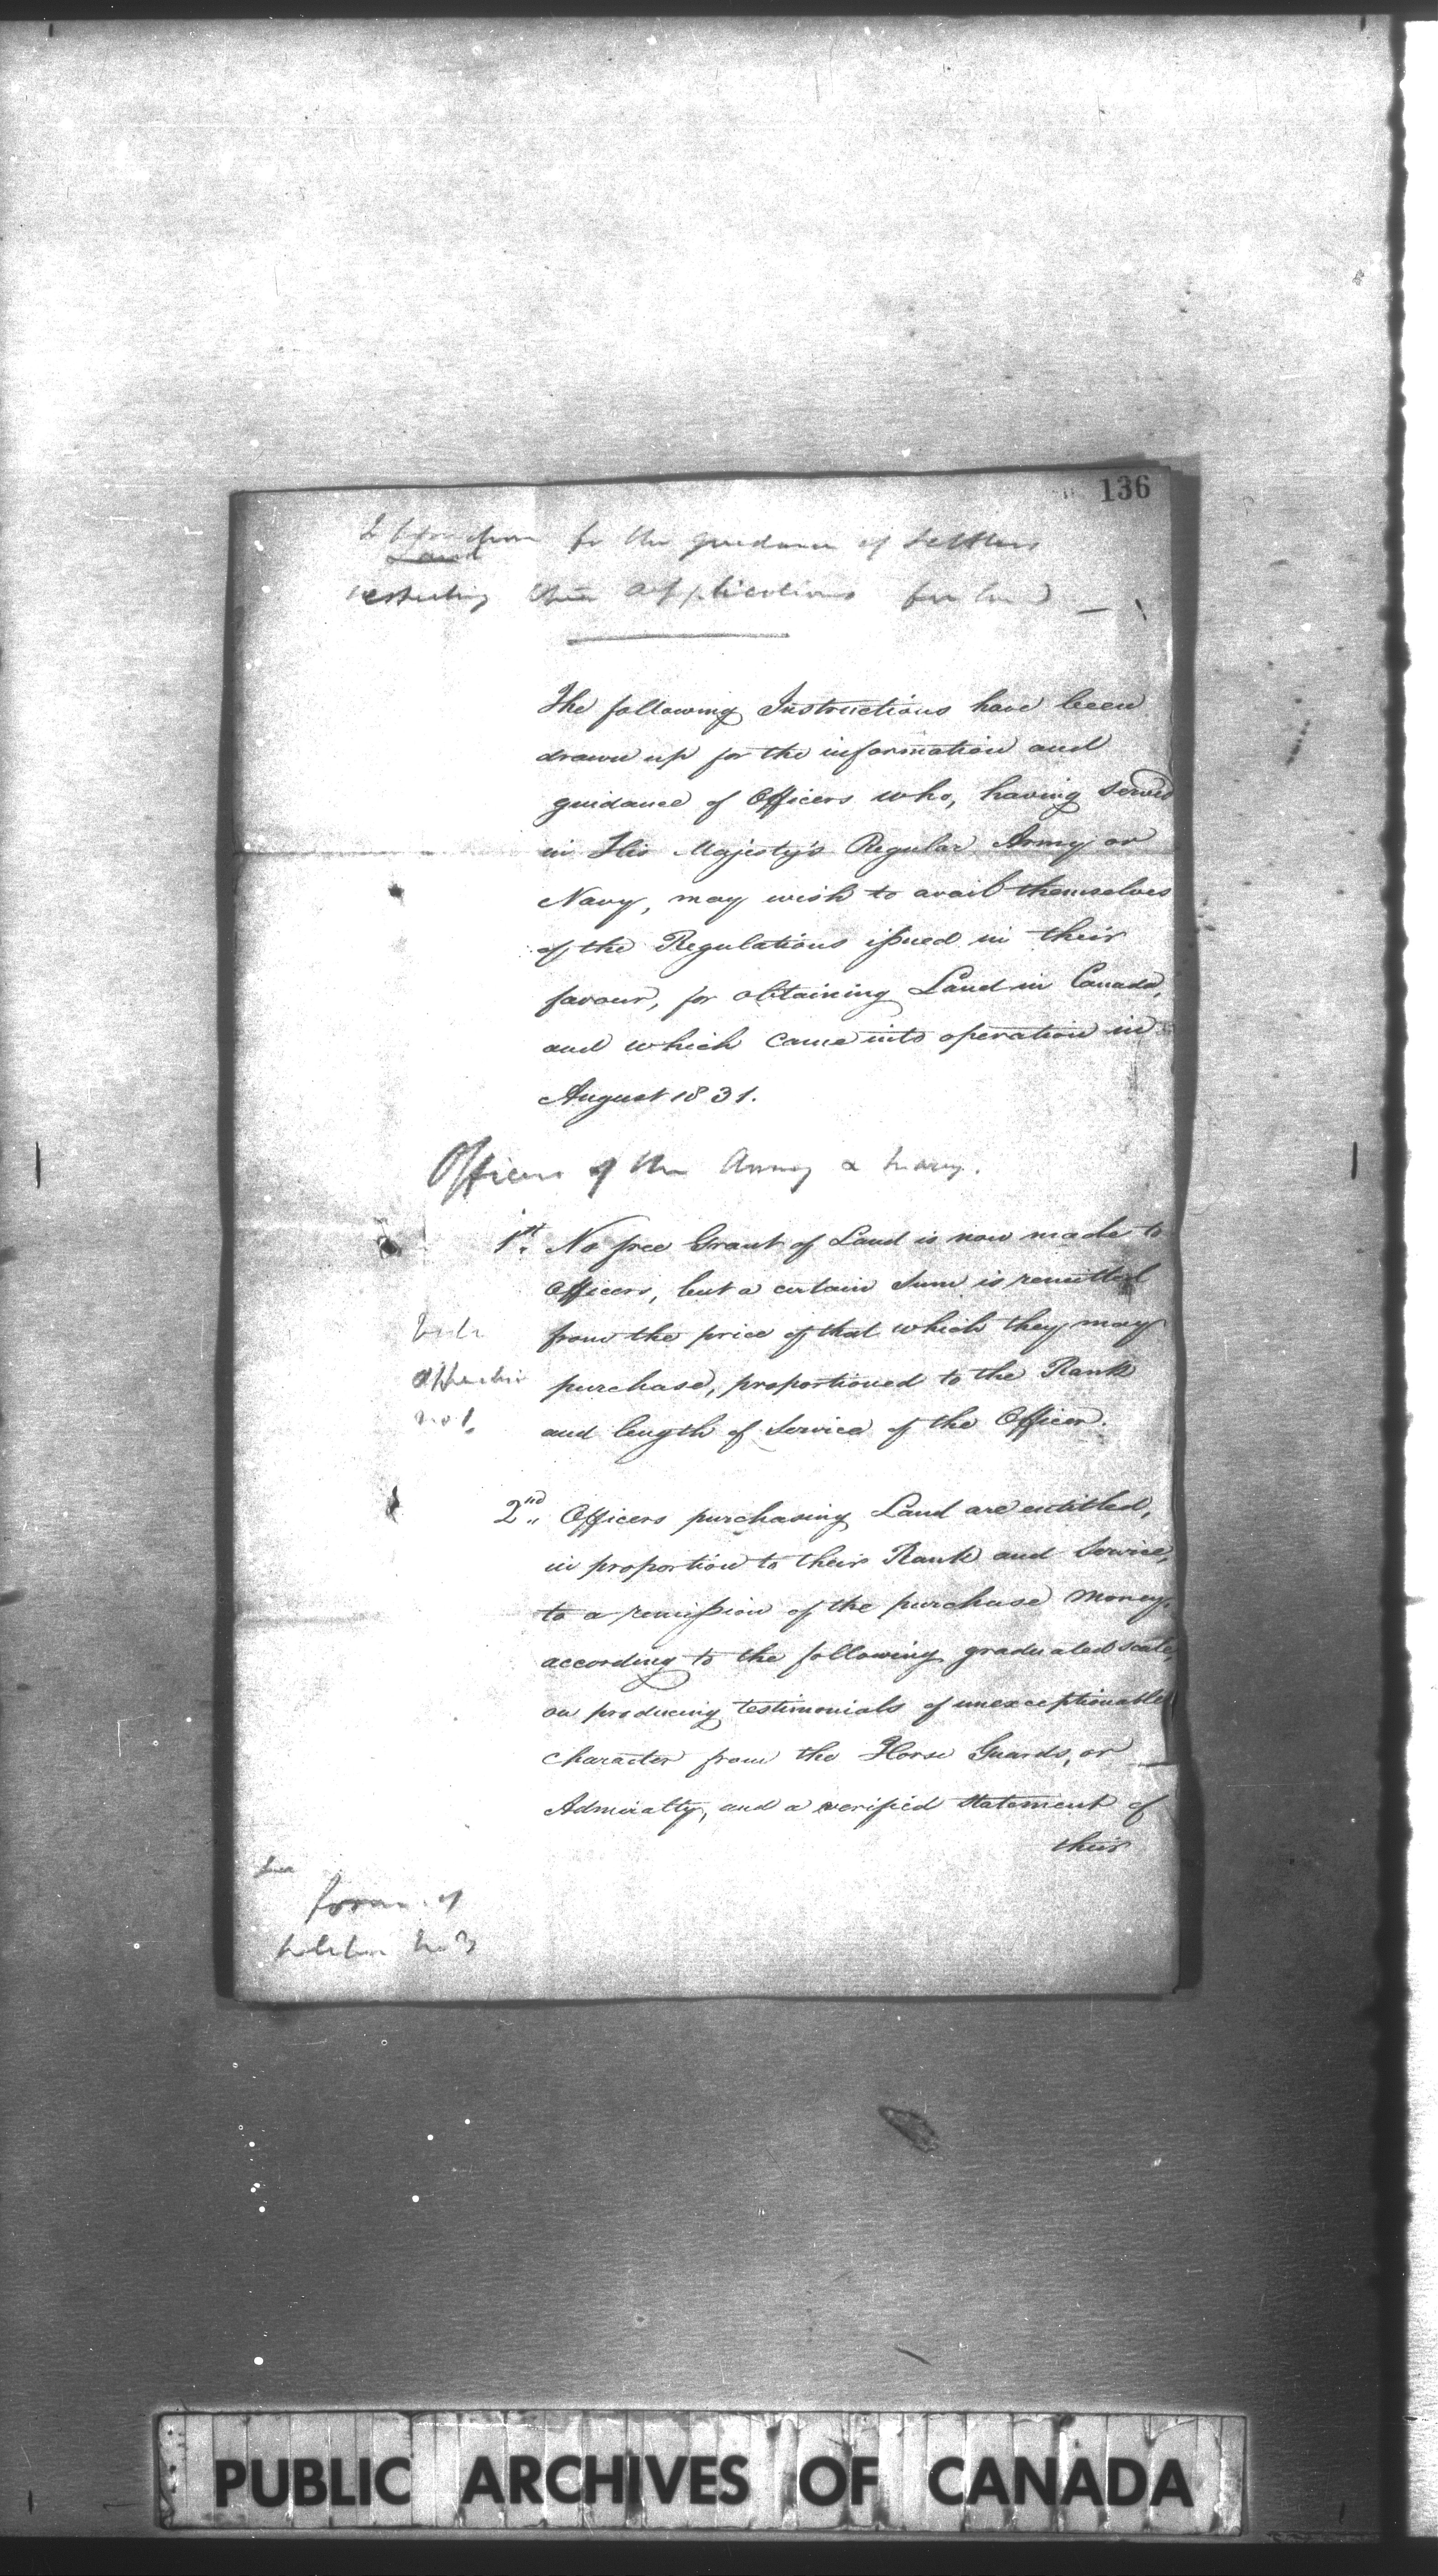 136
for the guidance of Settlers
their applications for land
The following Instructions have been
drawn up for the information and
guidance of Officers who, having served
in His Majesty's Regular Army or
Navy, may wish to avail themselves
of the Regulations issued in their
favour, for obtaining Land in Canada,
and which came into operation in
August 1831.
Officers of the Army & Navy.
1st. No free Grant of Land is now made to
Officers, but a certain Sum is remitted
from the price of that which they may
purchase, proportioned to the Rank
and length of Service of the Officer.
Vide
appendix
No 1.
2nd. Officers purchasing Land are entitled,
in proportion to their Rank and Service,
to a remission of the purchase Money,
according to the following graduated scale,
on producing testimonials of unexceptionable
Character from the Horse Guards, or
Admiralty, and a verified Statement of
their
form of
PUBLIC ARCHIVES OF CANADA